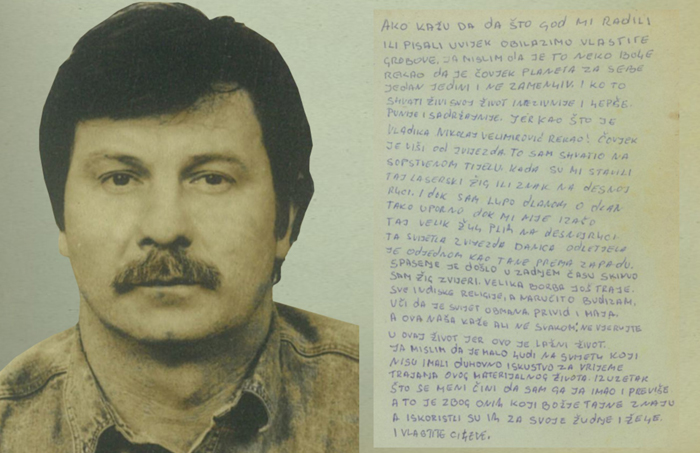 AKO KAŽU DA DA ŠTO GOD MI RADILI
ILI PISALI UVIJEK OBILAZIMO VLASTITE
GROBOVE. JA MISLIM DA JE TO NEKO BOLJE
REKAO DA JE ČOVJEK PLANETA ZA SEBE
JEDAN JEDINI I NE ZAMENLJIV. I KO TO
SHVATI ŽIVI SVOJ ŽIVOT INTEZIVNIJE I LEPŠE.
PUNIJE I SADRŽAJNIJE. JER KAO ŠTO JE
VLADIKA NIKOLAJ VELIMIROVIĆ REKAO! ČOVJEK
JE VIŠI OD ZVIJEZDA. TO SAM SHVATIO NA
SOPSTVENOM TIJELU KADA SU MI STAVILI
TAJ LASERSKI ŽIG ILI ZNAK NA DESNOJ
RUCI. I DOK SAM LUPO DLANOM O DLAN
TAKO UPORNO DOK MI NIJE IZAŠO
TAJ VELIK ŽULJ PLIK NA DESNOJ RUCI
TA SVIJETLA ZVIJEZDA DANICA ODLETJELA
JE ODJEDNOM KAO TANE PREMA ZAPADU.
SPASENJE JE DOŠLO U ZADNJEM ČASU SKINUO
SAM ŽIG ZVIJERI. VELIKA BORBA JOŠ TRAJE.
SVE LUDSKE RELIGIJE, A NARUČITO BUDIZAM.
UČI DA JE SVIJET OBMANA, PRIVID I MAJA.
A OVA NAŠA KAŽE ALI NE SVAKOM; NE VJERUJTE
U OVAJ ŽIVOT JER OVO JE LAŽNI ŽIVOT.
JA MISLIM DA JE MALO LUDI NA SVIJETU KOJI
NISU IMALI DUHOVNO ISKUSTVO ZA VRIJEME
TRAJANJA OVOG MATERIJALNOG ŽIVOTA. IZUZETAK
ŠTO SE MENI ČINI DA SAM GA JA IMAO I PREVIŠE
A TO JE ZBOG ONIH KOJI BOŽJE TAJNE ZNAJU
A ISKORISTLI SU IH ZA SVOJE ŽUDNJE I ŽELJE.
I VLASTITE CILJEVE.